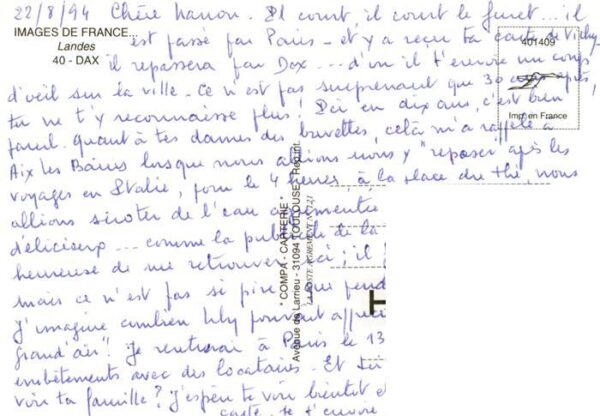 22/8/94 Chère Manon. Il court, il court le furet... il
IMAGES DE FRANCE...
Landes
40 - DAX
est passé par Paris - et y a reçu ta carte de Vichy
il repassera par Dax ... d'où il t'envoie un coup
d'œil sur la ville. Ce n'est pas surprenant que 30 ans après,
tu ne t'y reconnaisse plus! Ici en dix ans, c'est bien
pareil. Quant à tes dames des buvettes, celà m'a rappelé à
Aix les Bains lorsque nous allions nous y "reposer" après les
voyages en Italie, pour le 4 heures à la place du thé, nous
allions siroter de l'eau
comme la de la
heureuse de me retrouver ici; il
mais ce n'est pas si pire que
J'imagine combien Lily pourrait
grand'air". Je rentrerai à Paris le 13
embêtements avec des locataires. Et toi
voir ta famille? J'espère te voir bientôt et
carte je t'envoie
401409
Imp. en France
* COMPA - CARTERIE *
Avenue de Larrieu - 31094 TOULOUSE Repr. int.
LA POSTE AGREMENT N° 121